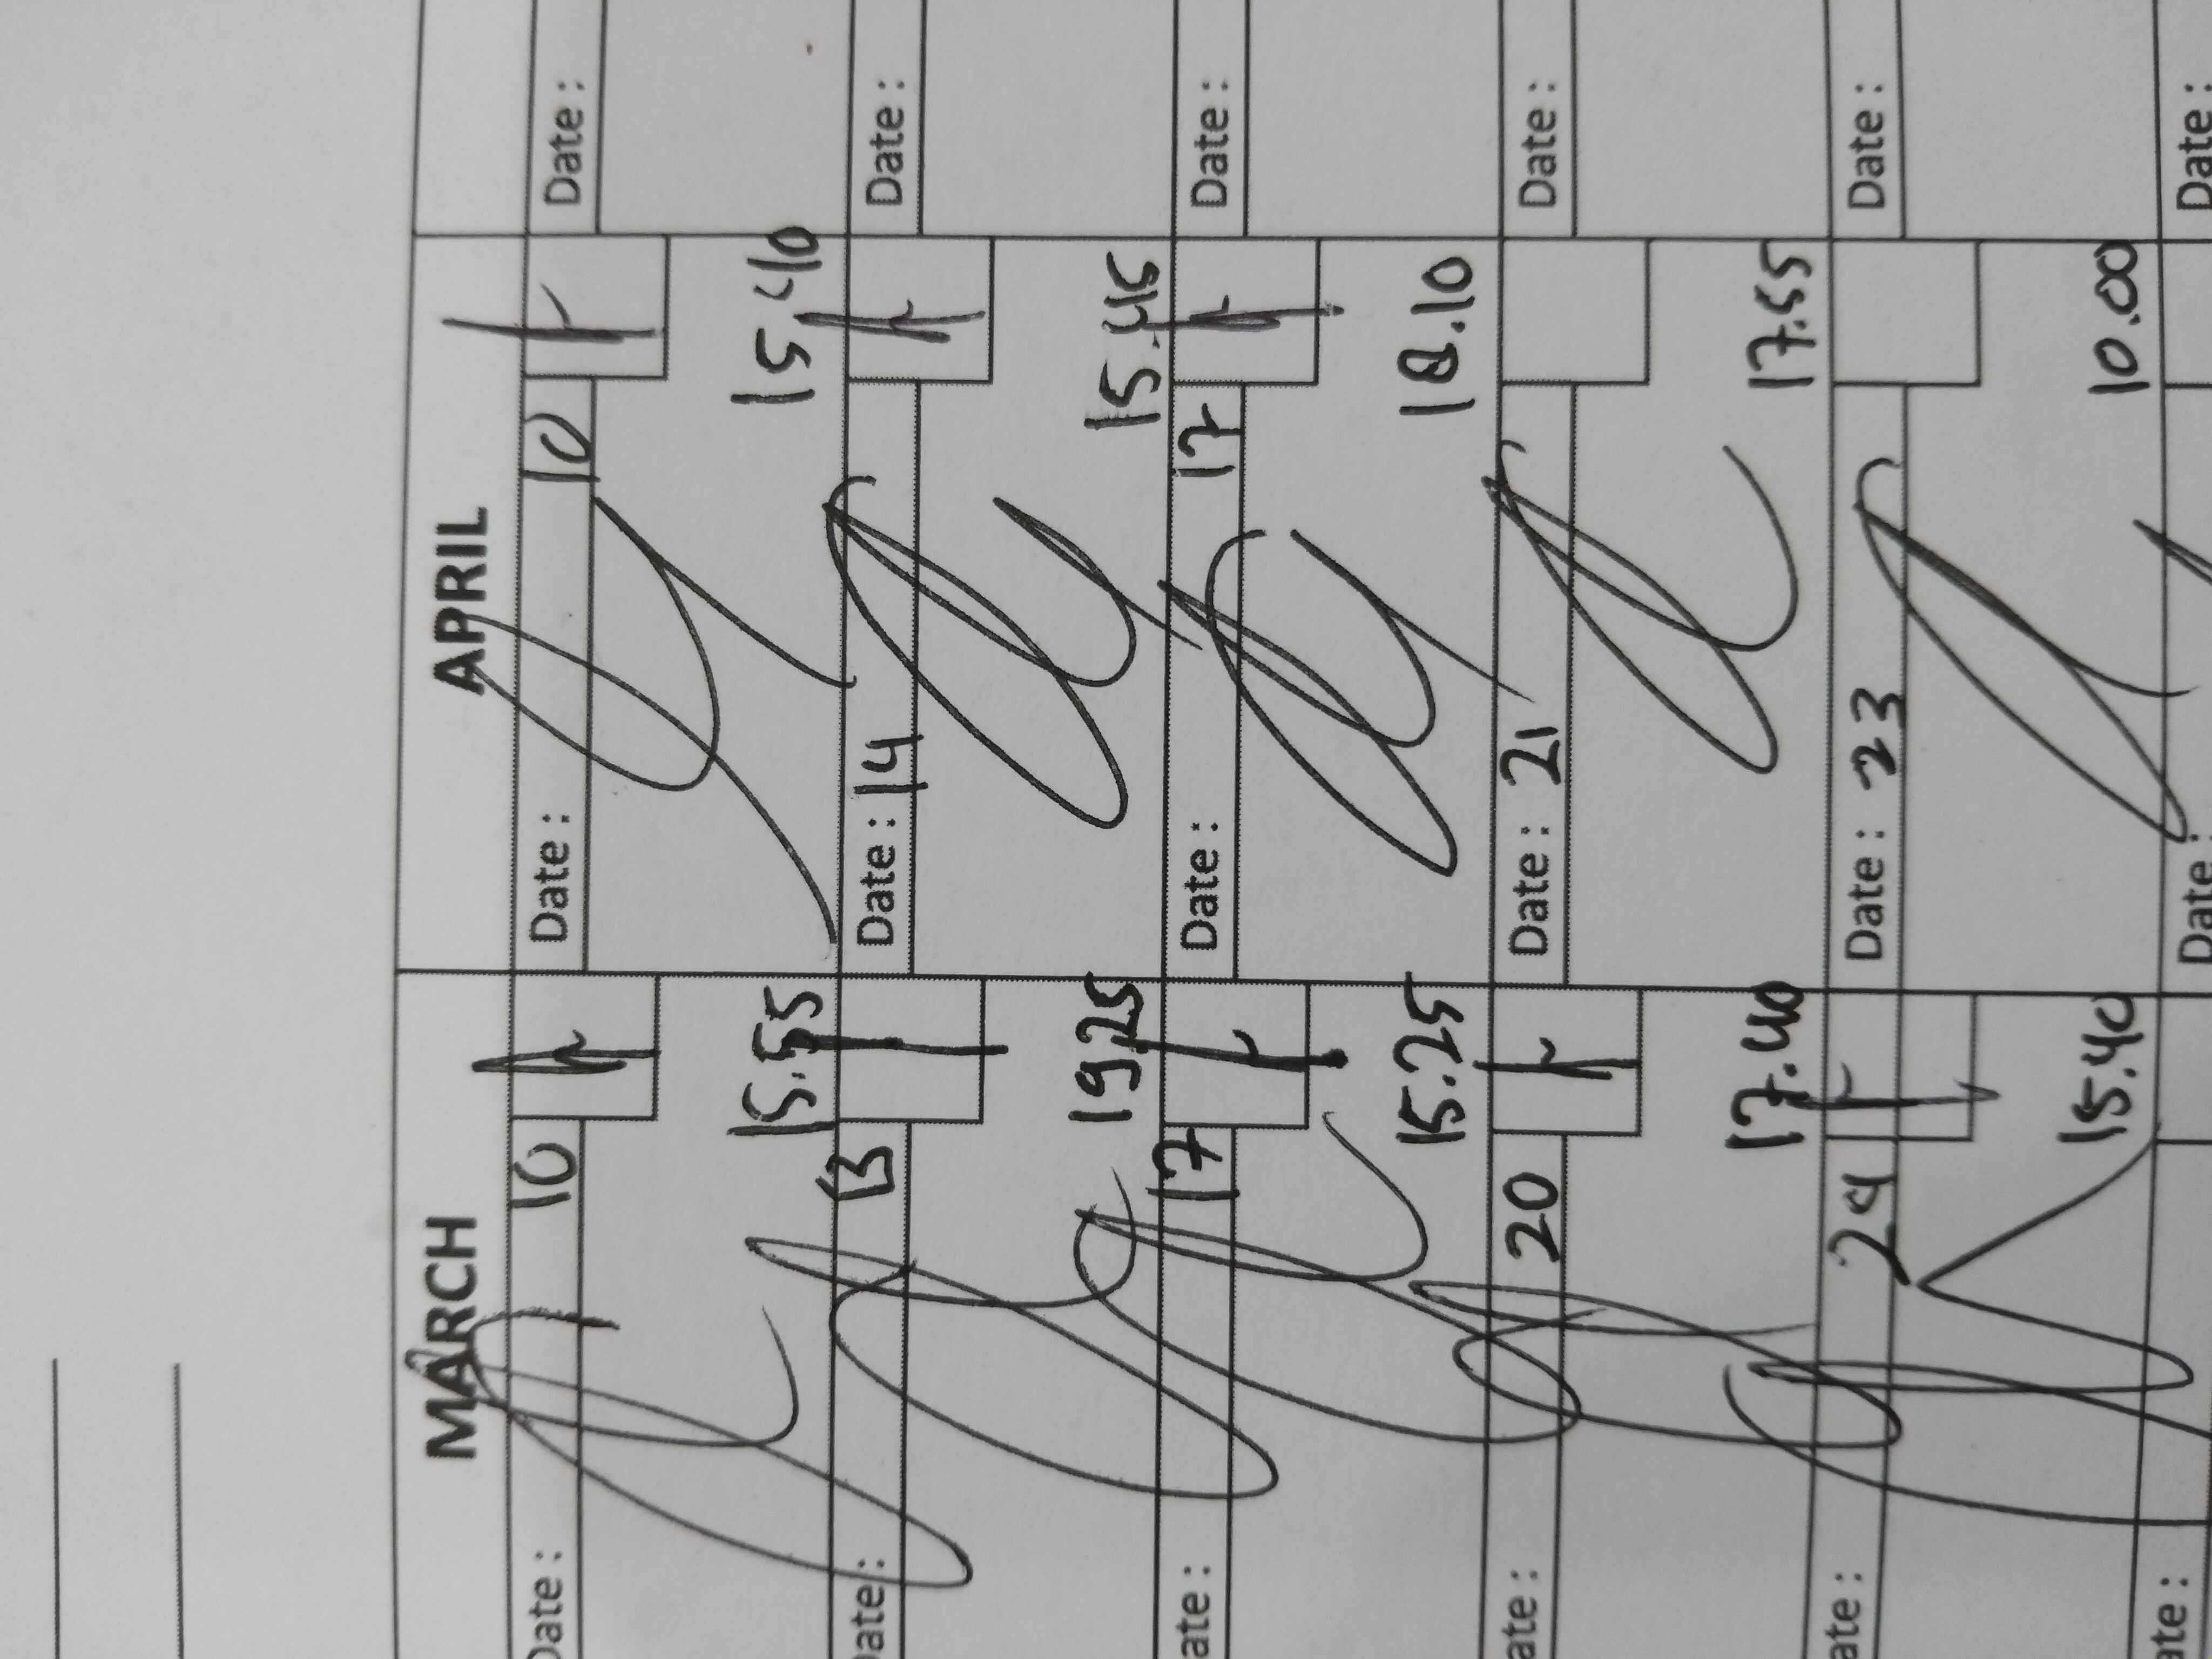 MARCH APRIL
Date : 10 Date : 10 Date :
15.55 15.40
Date : 13 Date : 14 Date :
19.25 15.45
ate : 17 Date : 17 Date :
15.25 18.10
ate : 20 Date : 21 Date :
17.40 17.55
ate : 24 Date : 23 Date :
15.40 10.00
ate : Date : Date :